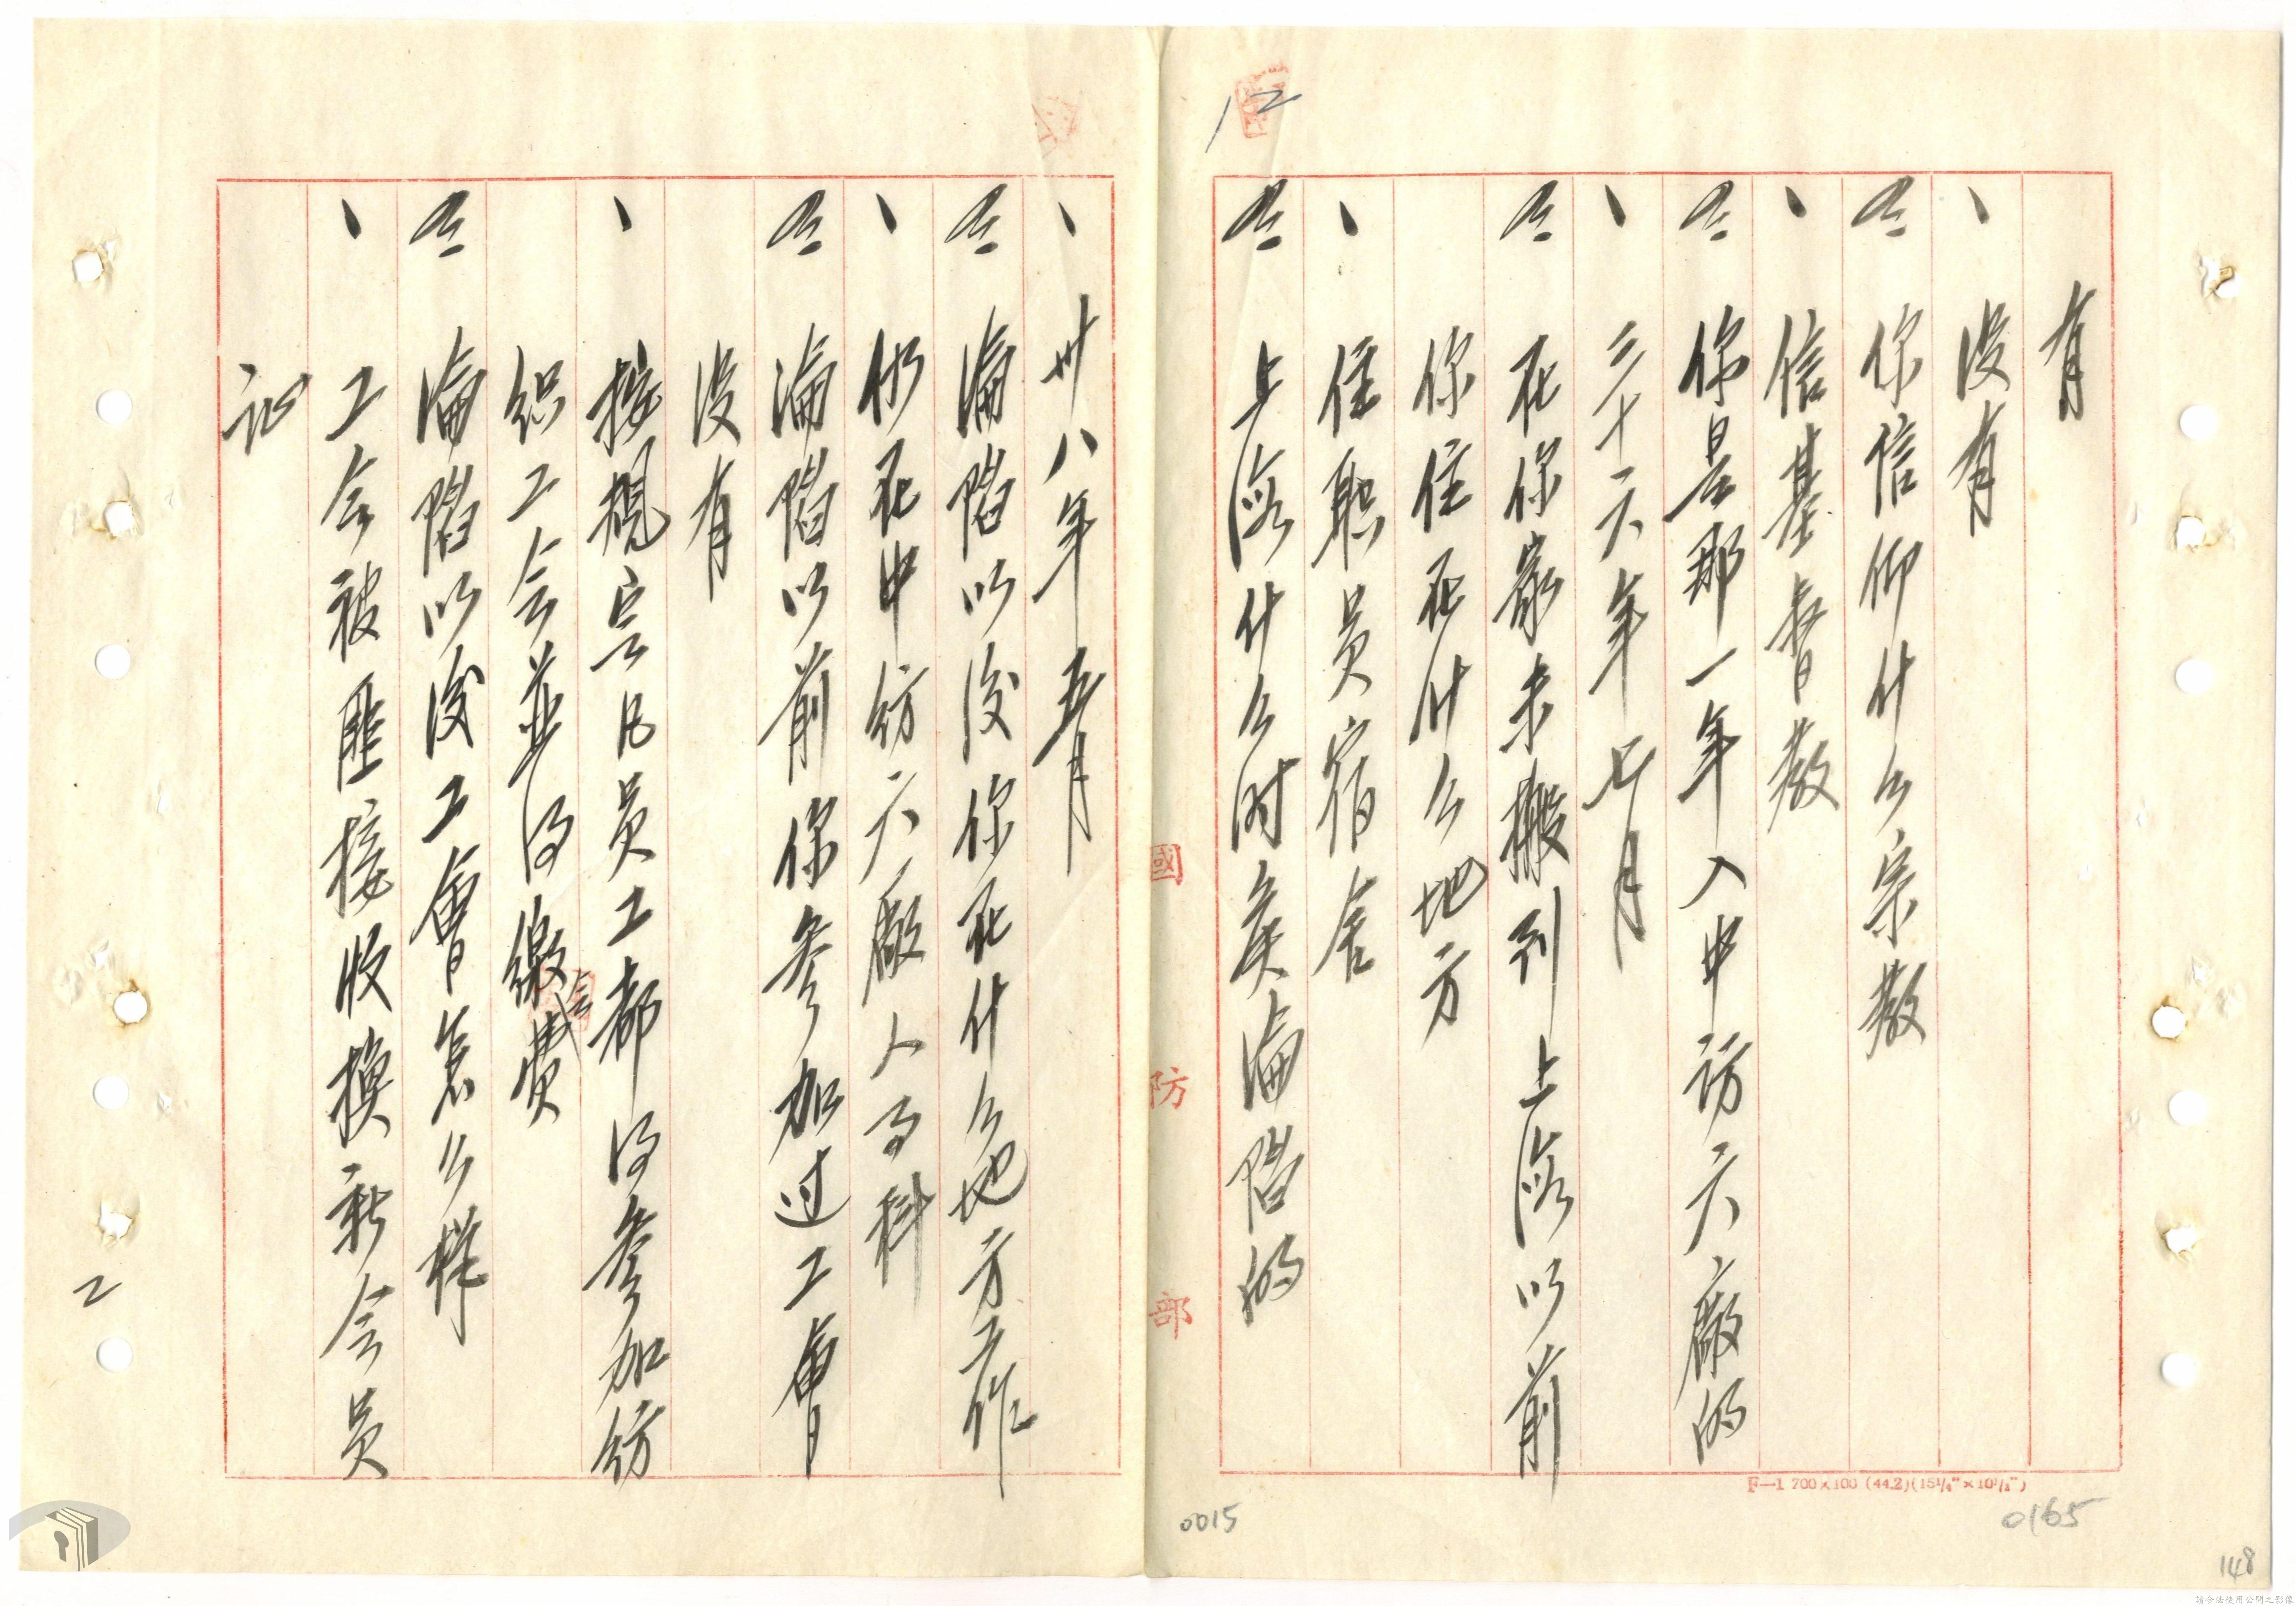 12
有
、没有
問 你信仰什么宗教
、信基督教
問 你是那一年入中訪六廠的
、三十六年七月
問 在你家未搬到上海以前
你住在什么地方
、住職員宿舍
問 上海什么时矦淪陷的
國防部
、卅八年五月
問 淪陷以後你在什么地方工作
、仍在中纺六廠人事科
問 淪陷以前你参加过工會
没有
、按規定凡員工都得参加纺
织工会並得繳会費
問 淪陷以後工會怎么样
、工会被匪接收换新会员
証
F—1 700×100 (44.2)(15¼"×10½")
0015
0165
148
2
請合法使用公開之影像